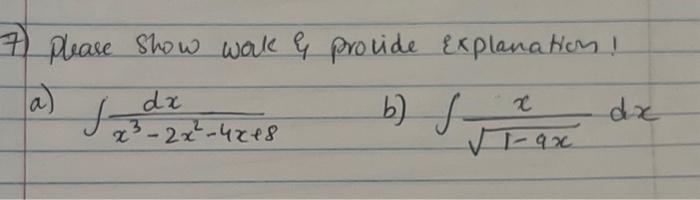 7) Please show work & provide explanation!
a) ∫ dx / (x³ - 2x² - 4x + 8) b) ∫ x / √(1 - 9x) dx